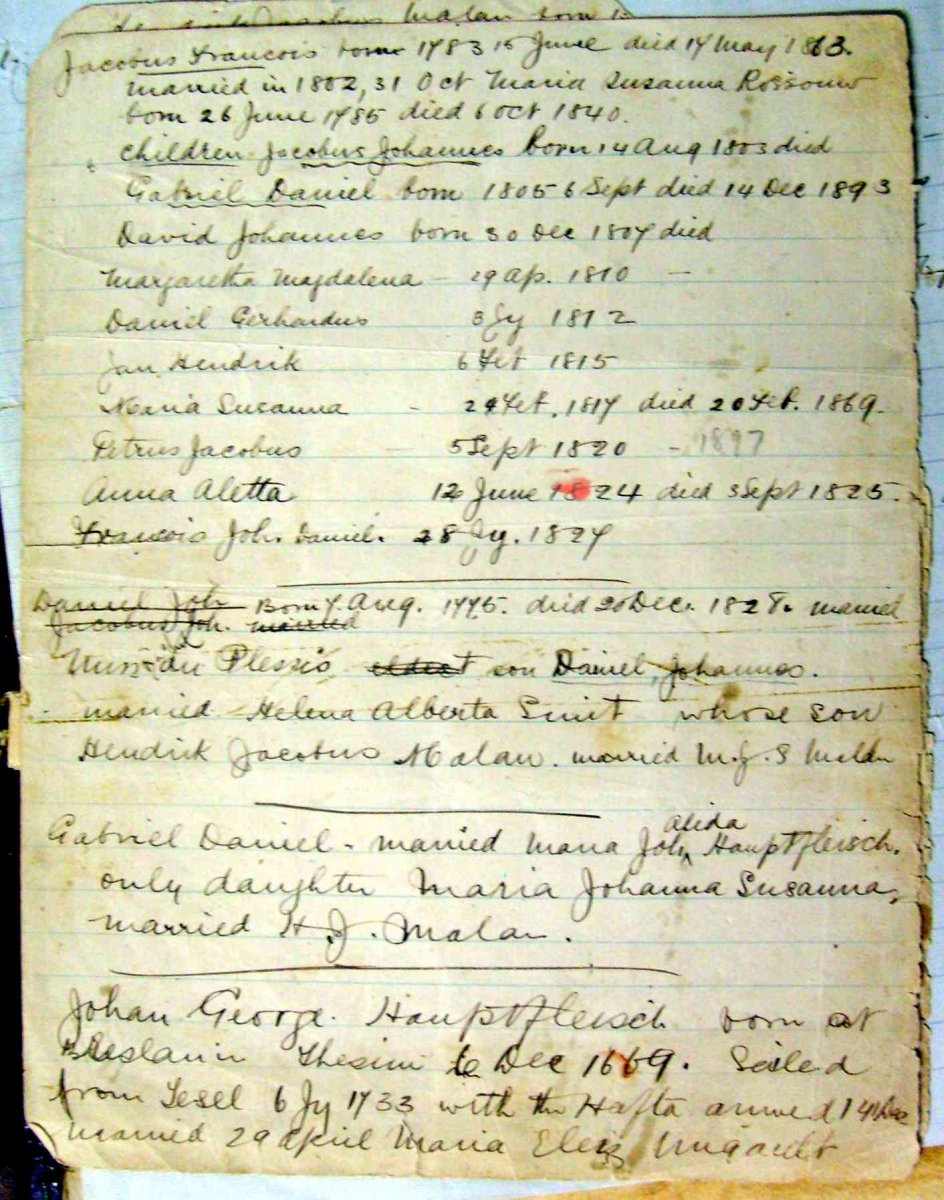 Jacobus Malan born
Jacobus Francois born 1783 15 June died 14 May 1863.
married in 1802, 31 Oct Maria Susanna Rossouw
born 26 June 1785 died 6 Oct 1840.
children Jacobus Johannes born 14 Aug 1803 died
Gabriel Daniel born 1805 6 Sept died 14 Dec 1893
David Johannes born 30 Dec 1807 died
Margaretha Magdalena – 19 Ap. 1810 –
Daniel Gerhardus 3 Jy 1812
Jan Hendrik 6 Feb 1815
Maria Susanna - 24 Feb. 1817 died 20 Feb. 1869.
Petrus Jacobus - 5 Sept 1820 - 1897
Anna Aletta 12 June 1824 died 3 Sept 1825.
Francois Joh. Daniel. 28 Jy. 1827
Daniel Joh Born 7 Aug. 1775. died 20 Dec. 1828. married
Jacobus Joh. married
Miss du Plessis eldest son Daniel Johannes.
married Helena Alberta Smit whose son
Hendrik Jacobus Malan. married M.J.S Malan
Gabriel Daniel - married Maria Joh Alida Hauptfleisch.
only daughter Maria Johanna Susanna,
married H.J. Malan.
Johan George Hauptfleisch born at
Dec 1669. Sailed
from Texel 6 Jy 1733 with the Hafta arrived 14 Dec
married 29 April Maria Eliz